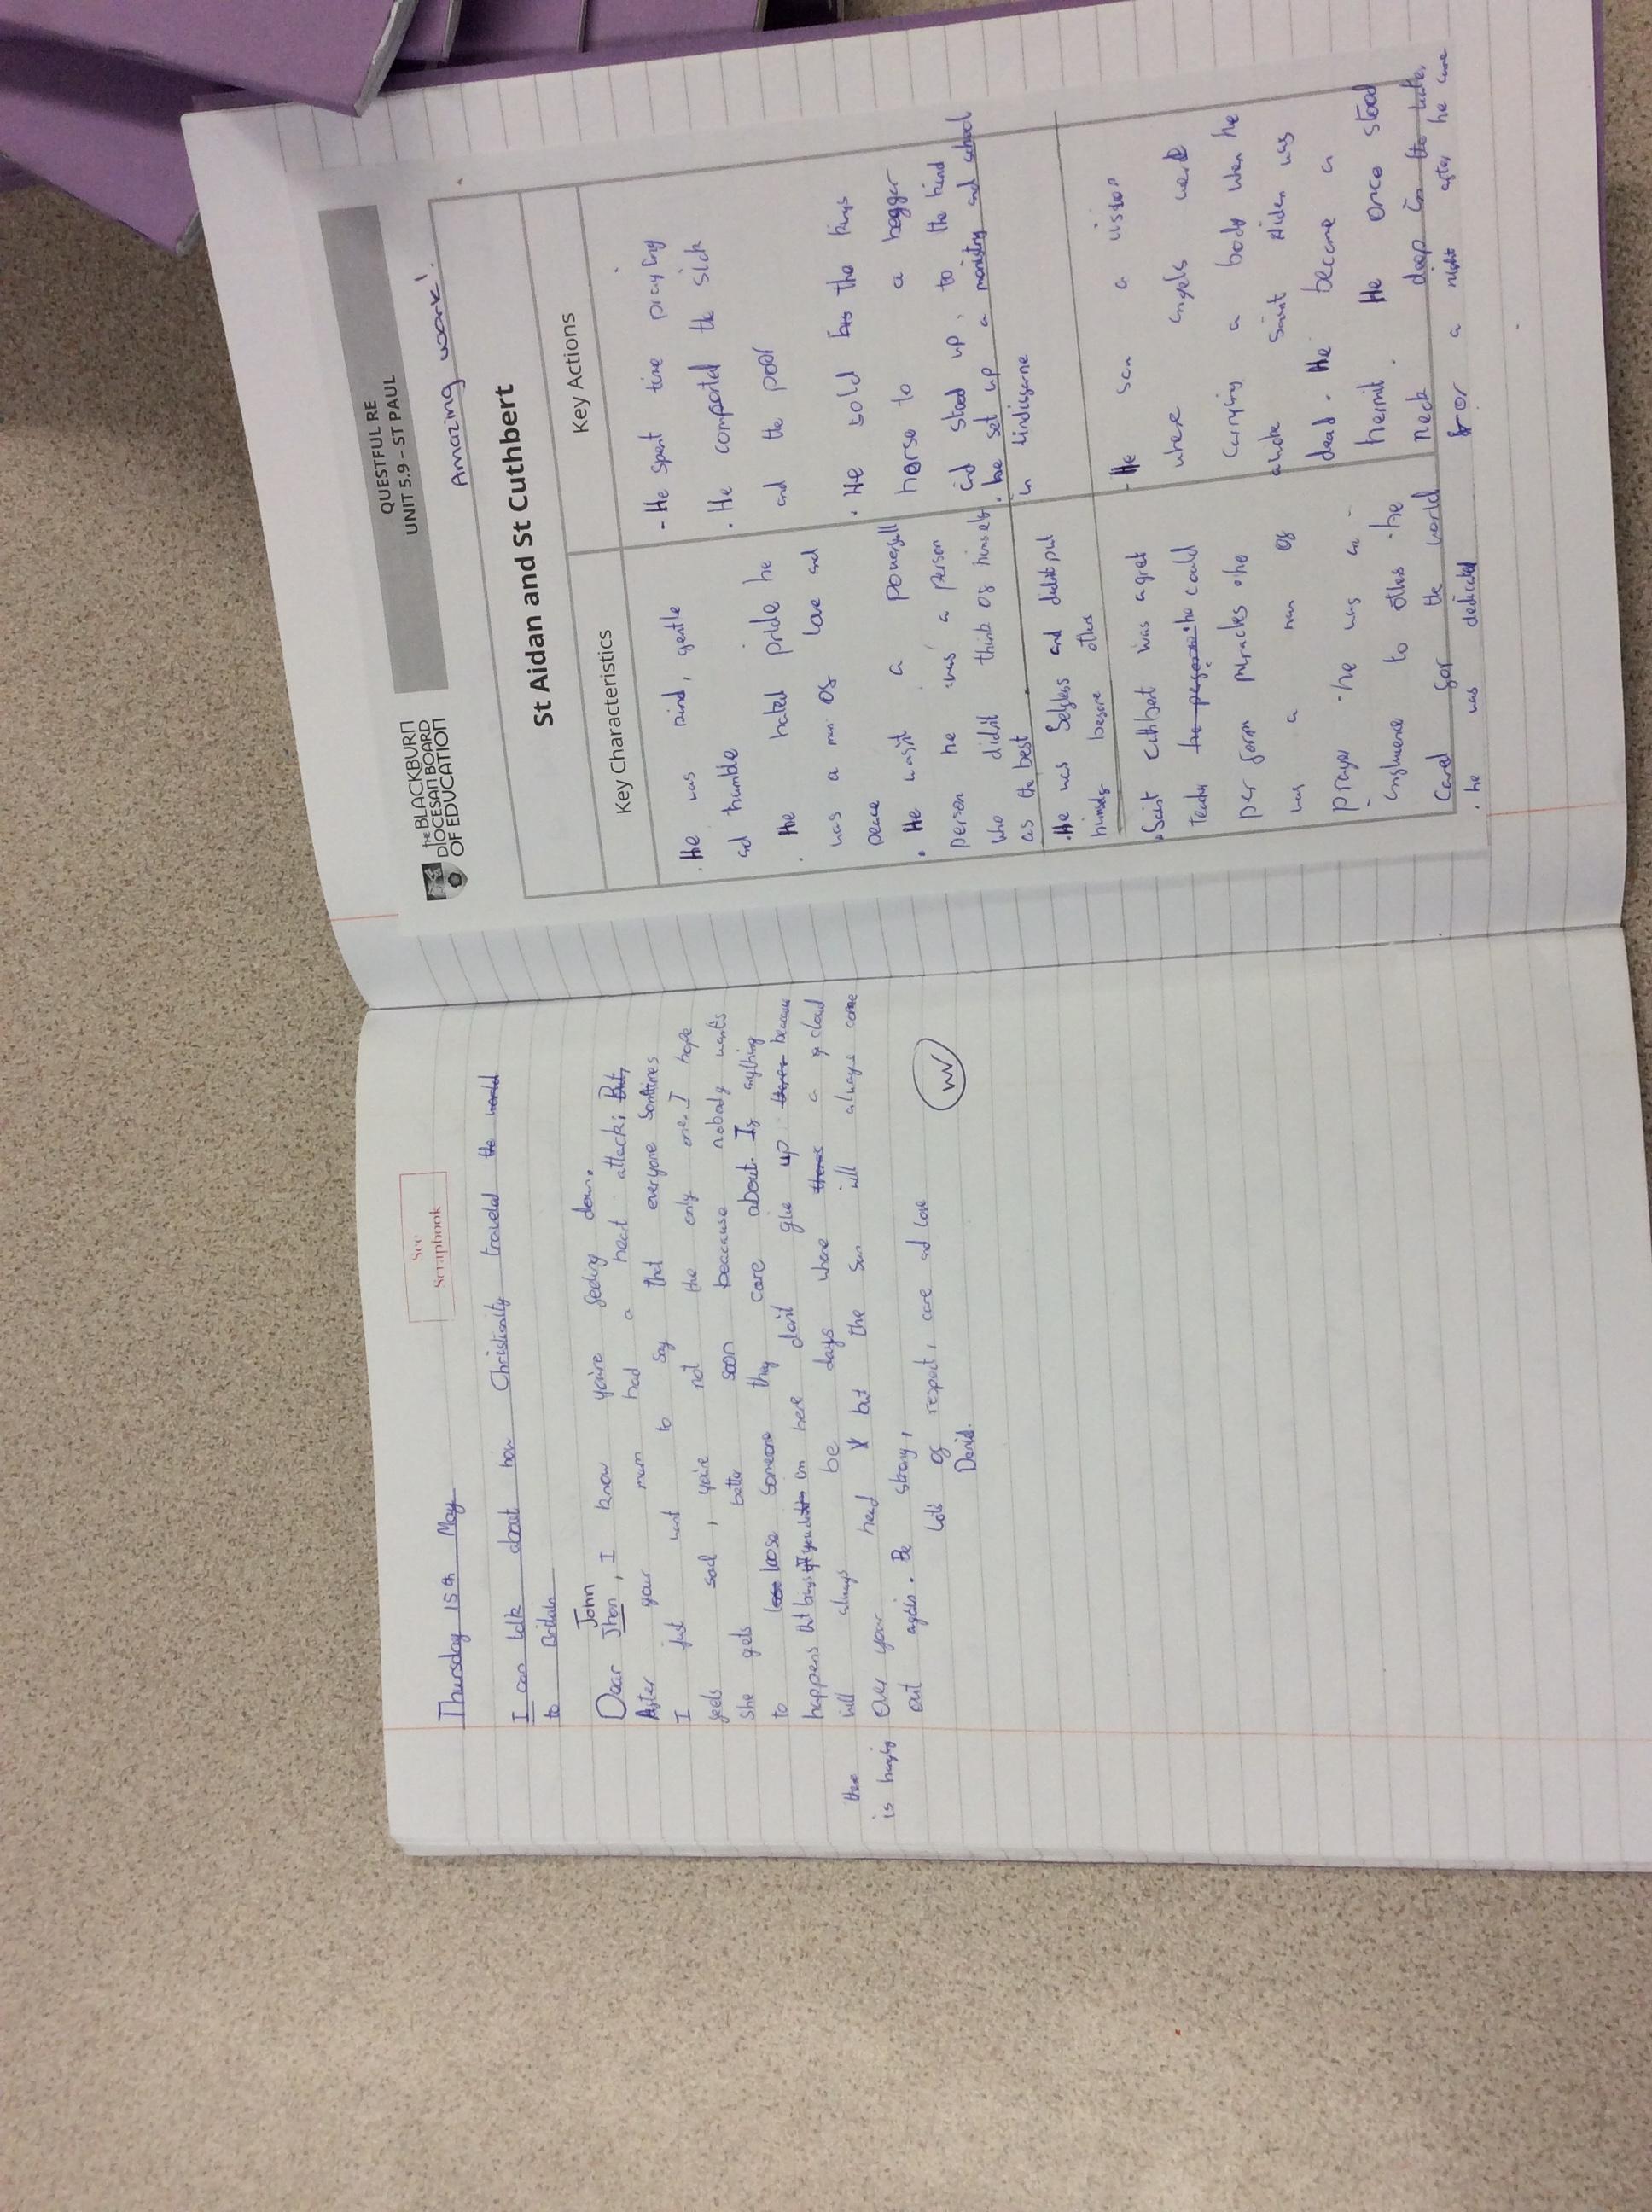 See
Scrapbook
Thursday 15th May
I can talk about how Christianity traveled the world
to Britain
John
Dear Jhon, I know you're feeling down.
After your mum had a heart attack; But,
I just want to say that everyone somtimes
feels sad, you're not the only one. I hope
She gets better soon beacause nobody wants
to loose someone they care about. If anything
happens im here don't give up because
will always be days where theres a cloud
there
is hanging over your head but the sun will always come
out again. Be strong,
Lots of respect, care and love
David.
W
THE BLACKBURN
DIOCESAN BOARD
OF EDUCATION
QUESTFUL RE
UNIT 5.9 – ST PAUL
Amazing work!
St Aidan and St Cuthbert
Key Characteristics
Key Actions
. He was kind, gentle
and humble
. He hated pride he
was a man of love and
peace
. He wasn't a powerfull
person he was a person
who didn't think of himself
as the best
. He was Selfless and didn't put
himself before other
- He Spent time praying
. He comforted the sick
and the poor
. He sold the kings
horse to a beggar
and stood up to the kind
. he set up a monistry and school
in lindisfarne
. Saint Cuthbert was a great
Teacher he perform he could
per form miracles . he
was a man of
prayer . he was an
influence to others . he
Cared for the world
. he was dedicated
- He saw a vision
where angels were
carrying a body when he
awoke Saint Aiden was
dead. He became a
hermit. He once stood
Neck deep in the
for a night after he came